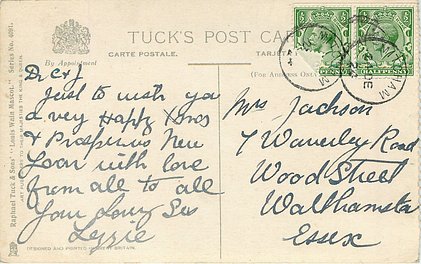 TUCK'S POST CARD
CARTE POSTALE.
By Appointment
(FOR ADDRESS ONLY)
Raphael Tuck & Sons' "Louis Wain Mascot" Series No. 4091.
ART PUBLISHERS TO THEIR MAJESTIES THE KING & QUEEN.
HALFPENNY
HALFPENNY
D. C & J
Just to wish you
a very Happy Xmas
& Prosperous New
Year with love
from all to all
Your loving Sis
Lizzie
DESIGNED AND PRINTED IN GREAT BRITAIN.
Mrs Jackson
7 Waverley Road
Wood Street
Walthamstow
Essex